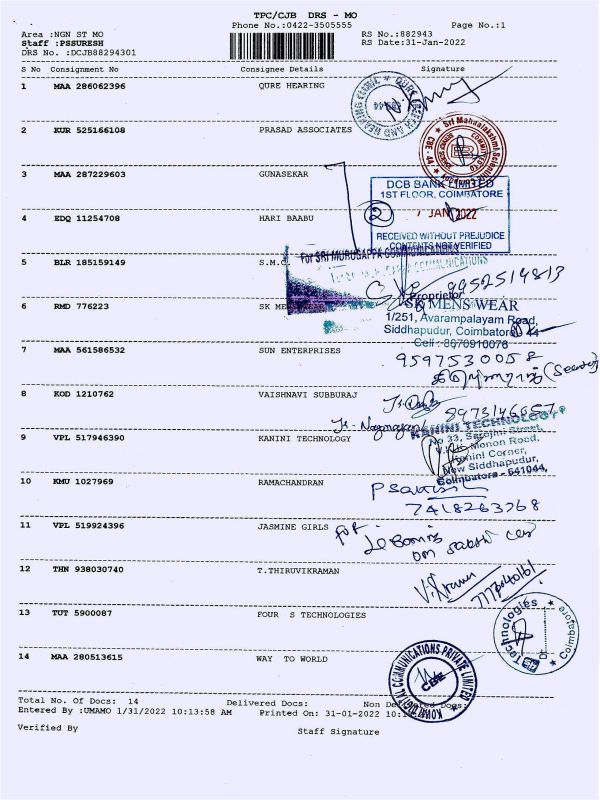 TPC/CJB DRS - MO
Phone No.:0422-3505555 Page No.:1
Area :NGN ST MO RS No.:882943
Staff :PSSURESH RS Date:31-Jan-2022
DRS No. :DCJB88294301
S No Consignment No Consignee Details Signature
1 MAA 286062396 QURE HEARING
2 KUR 525166108 PRASAD ASSOCIATES
Sri Mahaalakshmi
CBE - 44
3 MAA 287229603 GUNASEKAR
DCB BANK LIMITED
1ST FLOOR, COIMBATORE
4 EDQ 11254708 HARI BAABU
2 JAN 2022
RECEIVED WITHOUT PREJUDICE
CONTENTS NOT VERIFIED
For SRI MURUGAPPA COMMUNICATIONS
5 BLR 185159149 S.M.
9952514813
Proprietor
6 RMD 776223 SK ME
SK MENS WEAR
1/251, Avarampalayam Road,
Siddhapudur, Coimbatore 44
Cell : 8870910076
7 MAA 561586532 SUN ENTERPRISES
9597530058
8 KOD 1210762 VAISHNAVI SUBBURAJ
9 VPL 517946390 KANINI TECHNOLOGY
KANINI TECHNOLOGY
No 33, Sarojini Street,
Menon Road,
Kanini Corner,
New Siddhapudur,
Coimbatore - 641044,
10 KMU 1027969 RAMACHANDRAN
7418263768
11 VPL 519924396 JASMINE GIRLS
for
12 THN 938030740 T.THIRUVIKRAMAN
13 TUT 5900087 FOUR S TECHNOLOGIES
Technologies
Coimbatore
14 MAA 280513615 WAY TO WORLD
KOVAI DIGITAL COMMUNICATIONS PRIVATE LIMITED
CBE
Total No. Of Docs: 14 Delivered Docs: Non Delivered Docs:
Entered By :UMAMO 1/31/2022 10:13:58 AM Printed On: 31-01-2022
Verified By Staff Signature